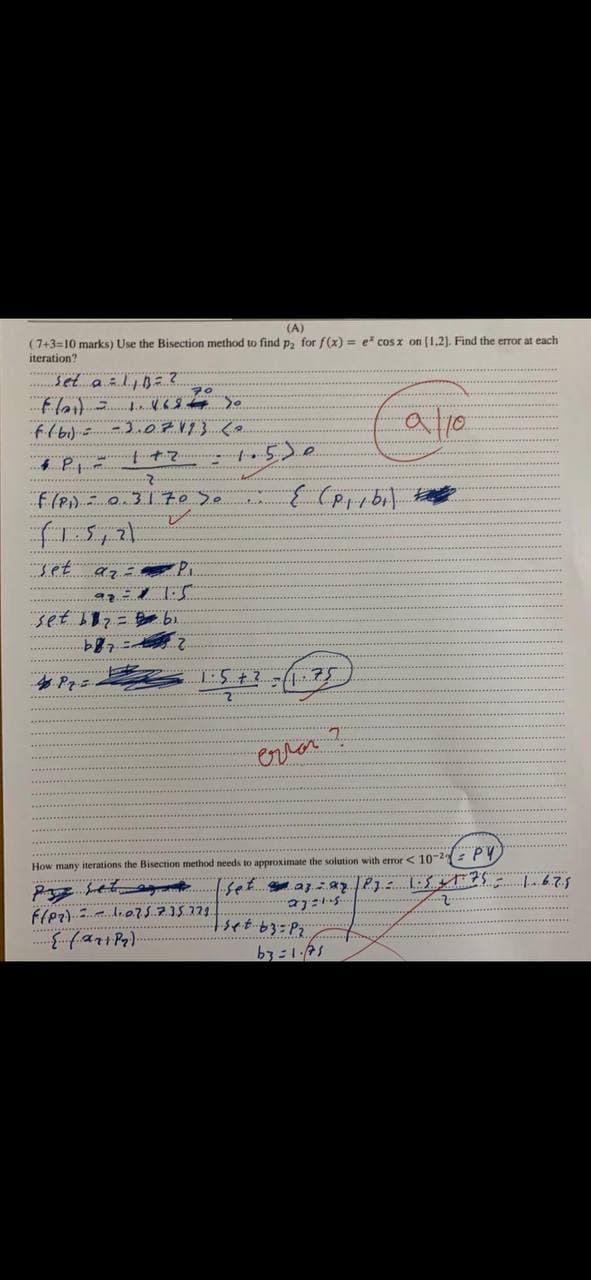 (A)
( 7+3=10 marks) Use the Bisection method to find p₂ for f(x) = eˣ cos x on [1,2]. Find the error at each
iteration?
set a = 1, B = 2
70
f(a₁) = 1.468 >0
f(b₁) = -3.07493 <0
a/10
P₁ = 1+2 / 2 = 1.5 >0
f(P₁) = 0.3170 >0 ∴ ξ (P₁, b₁)
(1.5, 2)
set a₂ = P₁
a₂ = 1.5
set b₂ = b₁
b₂ = 2
P₂ = 1.5+2 / 2 = 1.75
error ?
How many iterations the Bisection method needs to approximate the solution with error < 10⁻² = P4
set a₃ = a₂
P₃ = 1.5+1.75 / 2 = 1.625
f(P₂) = -1.025735329
a₃ = 1.5
ξ (a₂, P₂)
set b₃ = P₂
b₃ = 1.75